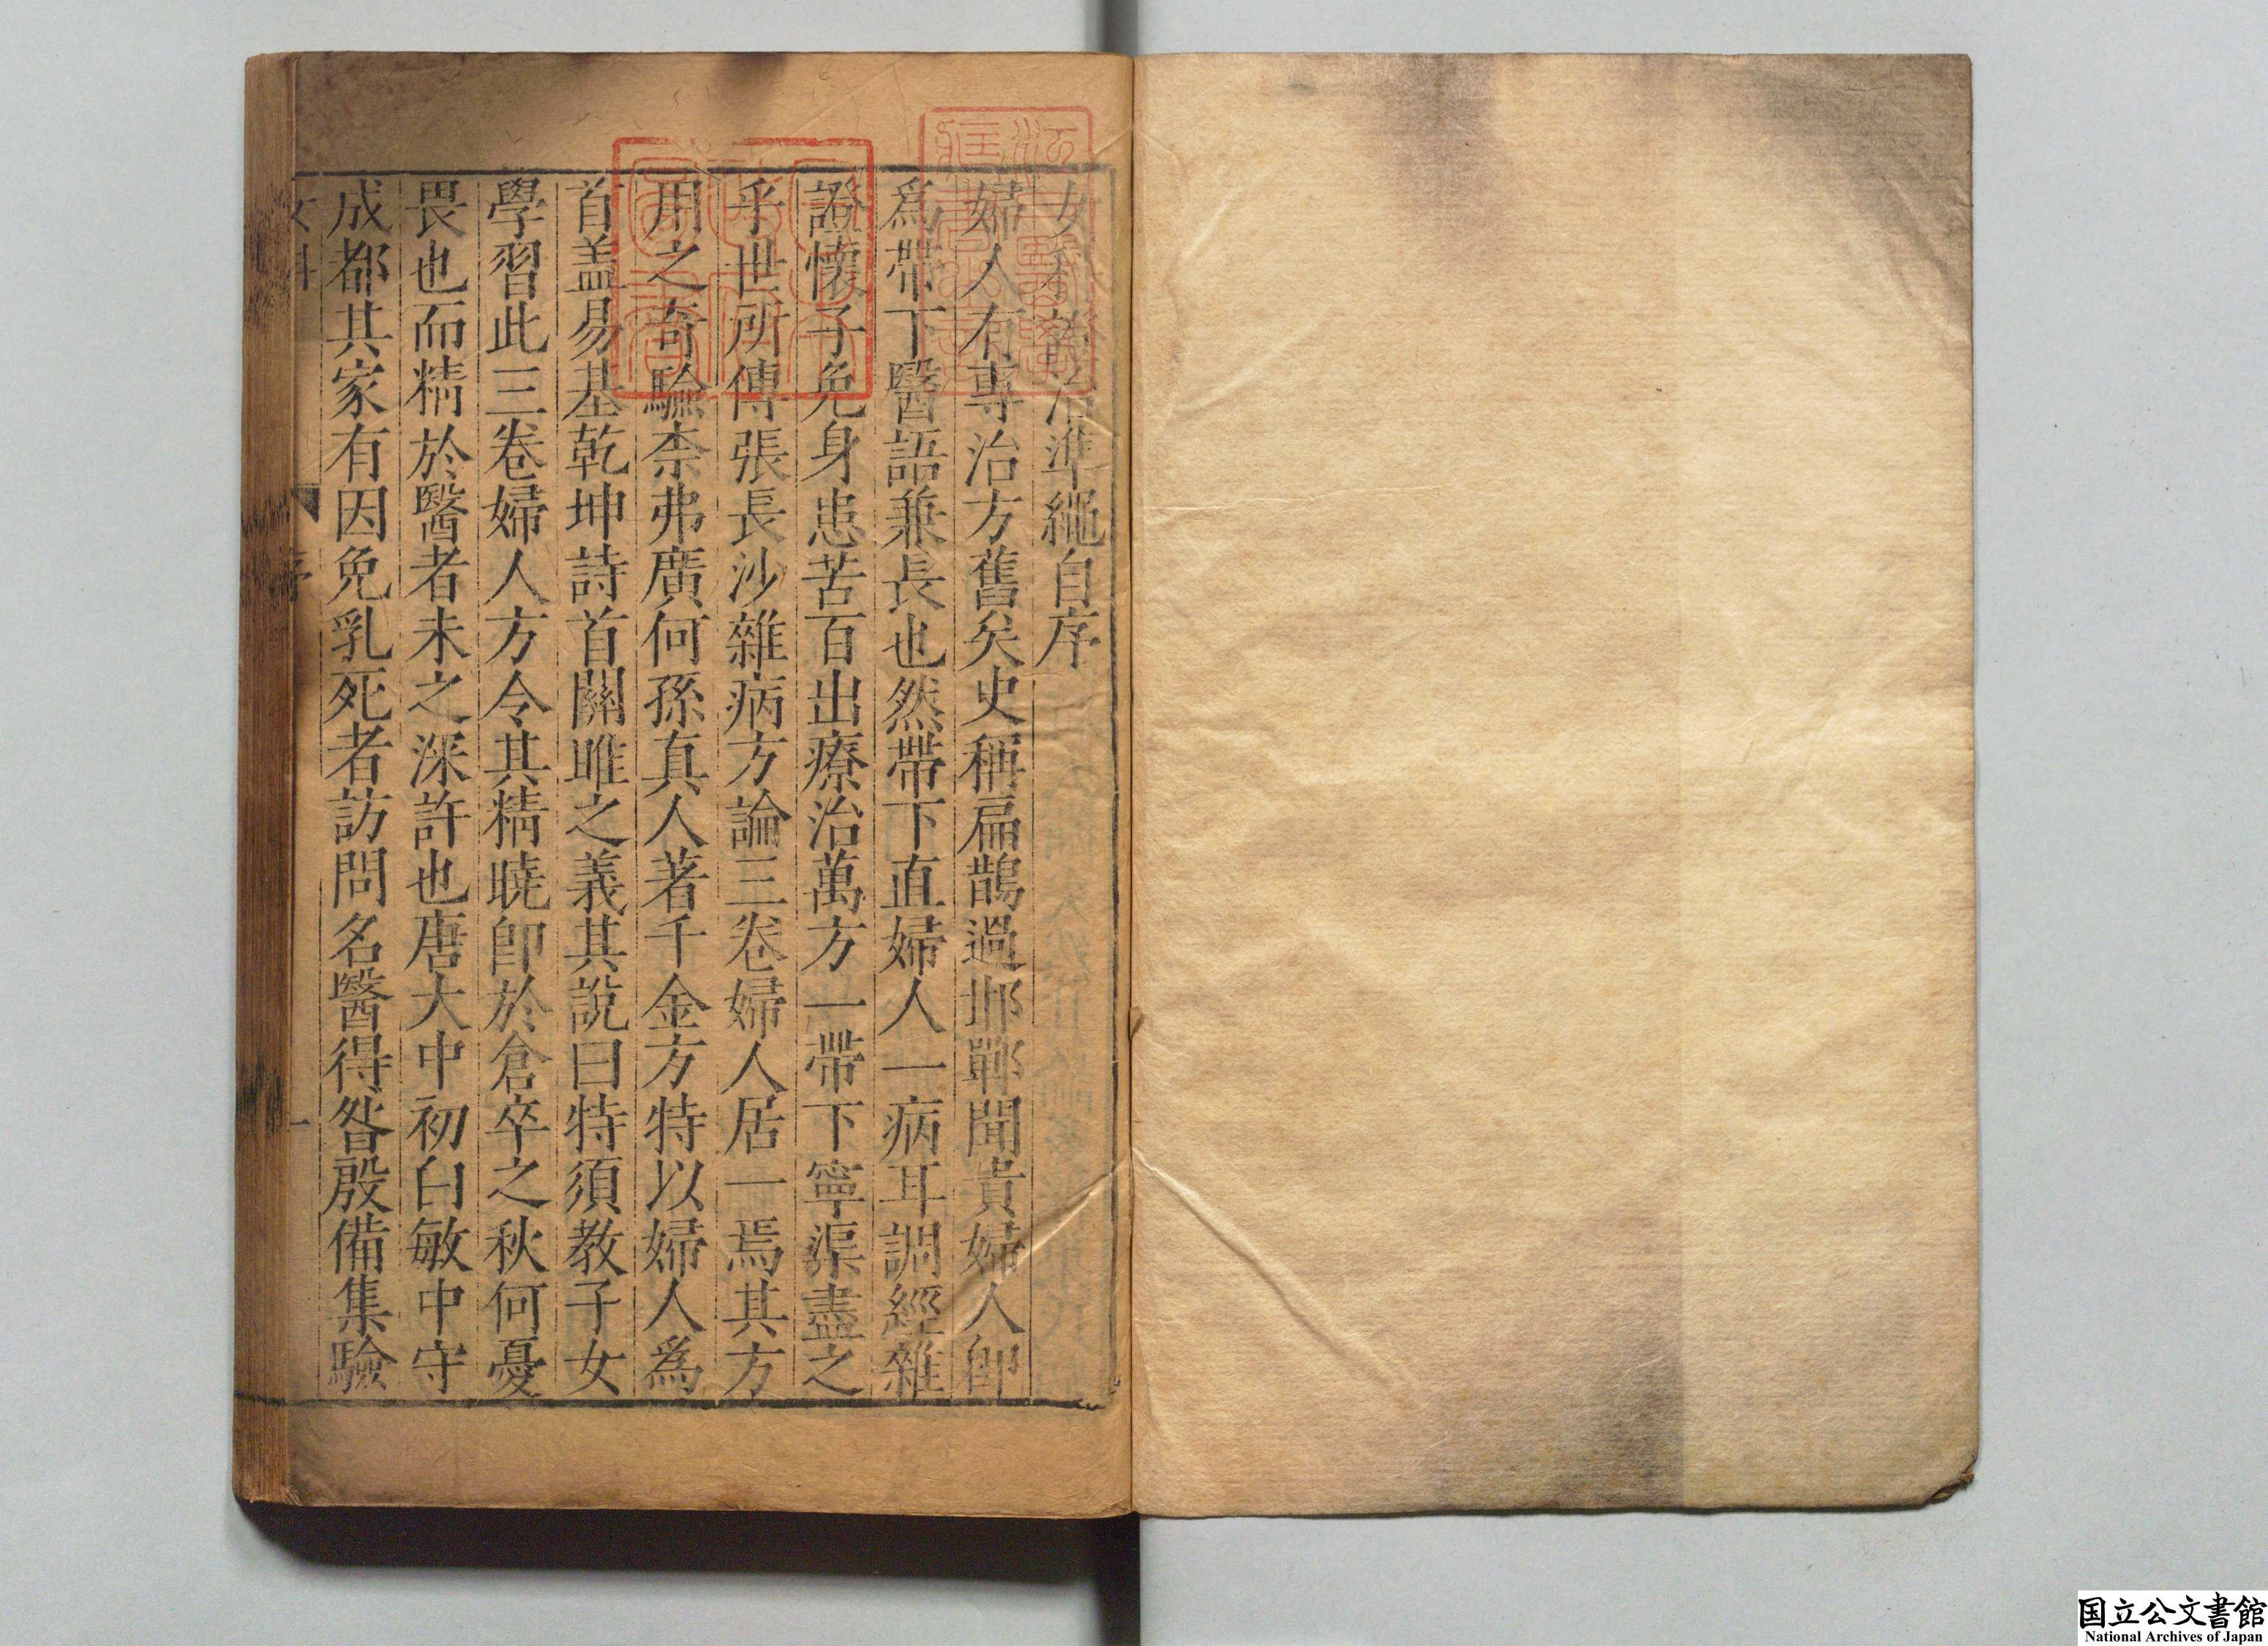 女科證治準繩自序
婦人有專治方舊矣史稱扁鵲過邯鄲聞貴婦人卽
爲帶下醫語兼長也然帶下直婦人一病耳調經雜
證懷子免身患苦百出療治萬方一帶下寧渠盡之
乎世所傳張長沙雜病方論三卷婦人居一焉其方
用之奇驗柰弗廣何孫真人著千金方特以婦人爲
首盖易基乾坤詩首關雎之義其說曰特須教子女
學習此三卷婦人方令其精曉卽於倉卒之秋何憂
畏也而精於醫者未之深許也唐大中初白敏中守
成都其家有因免乳死者訪問名醫得昝殷備集驗
女科
序
一
国立公文書館
National Archives of Japan